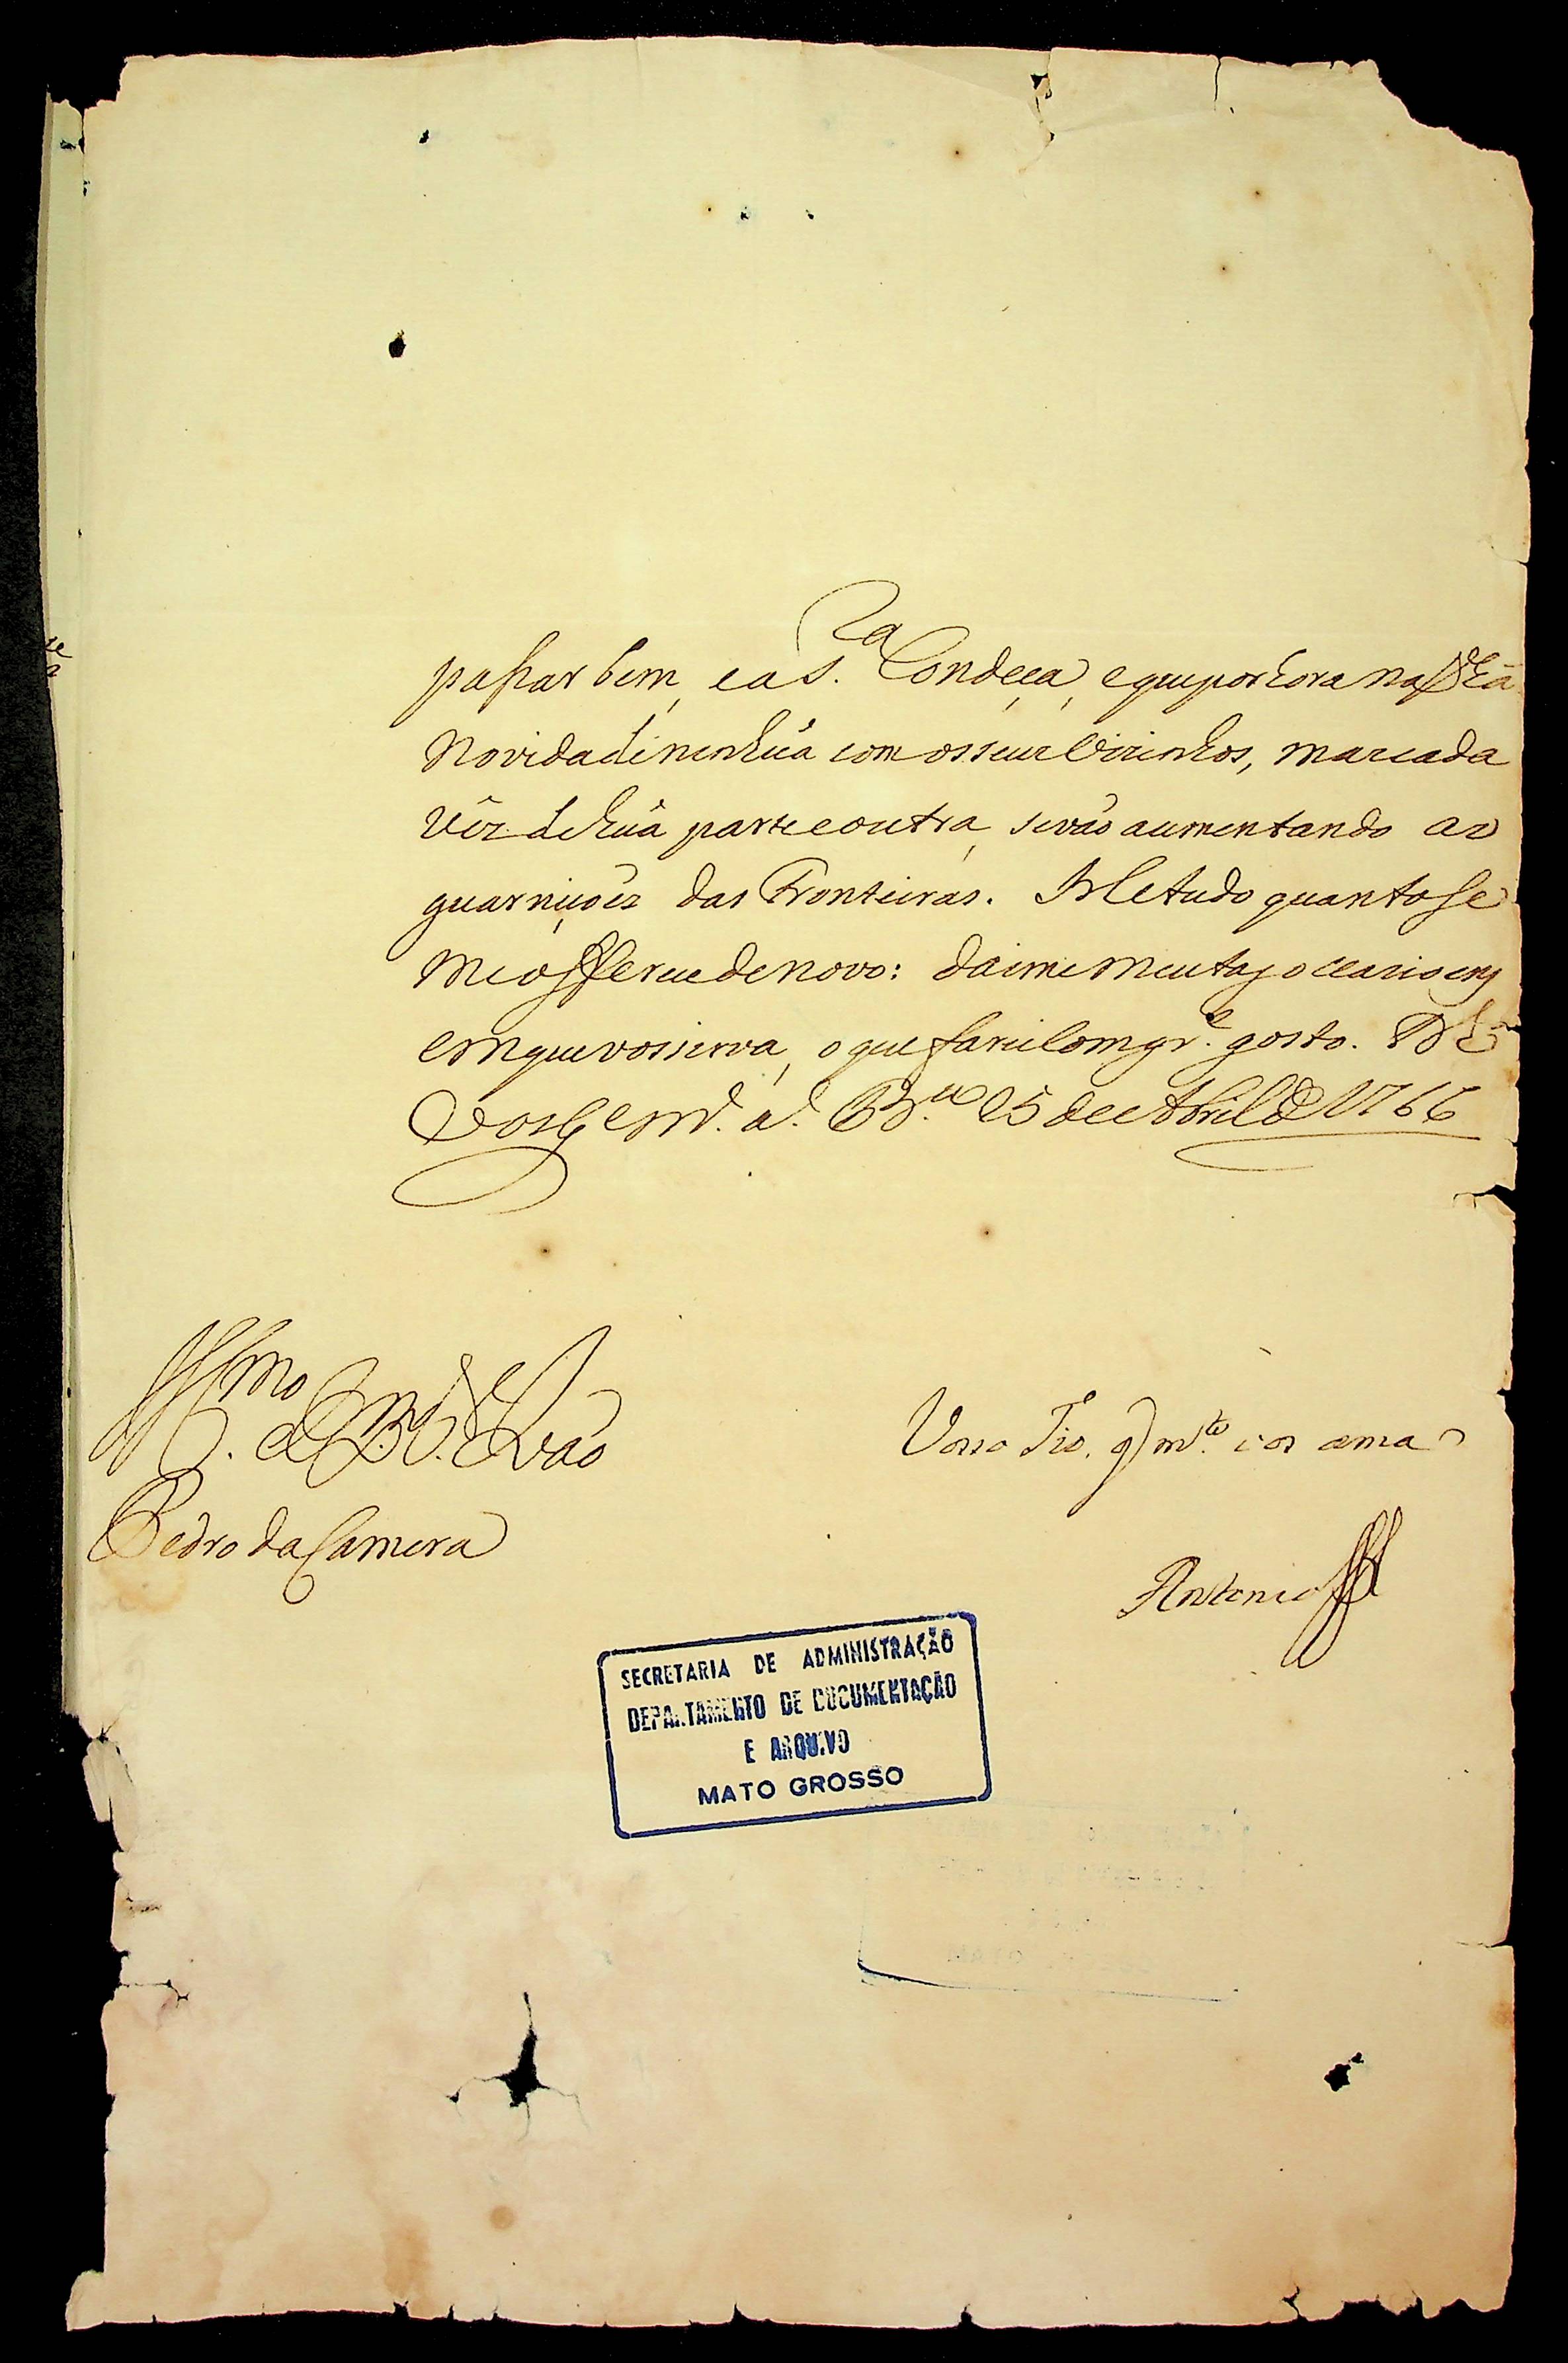 passar bem, e a S.ra Condeça, e que por hora naõ há
Novidade nenhũa com os seus Vizinhos, mas cada
vêz de hũa parte e outra, se vaõ aumentando as
guarniçoẽs das Fronteiras. He tudo quanto se
me offerece de novo: daime muitas occazioens
em que vos sirva, o que farei com gr.e gosto. D.s
vos g.e m.s a.s 25 de Abril de 1766
Ill.mo
Pedro da Camera
Vosso Tio. q m.to vos ama
Antonio
SECRETARIA DE ADMINISTRAÇÃO
DEPARTAMENTO DE DOCUMENTAÇÃO
E ARQUIVO
MATO GROSSO